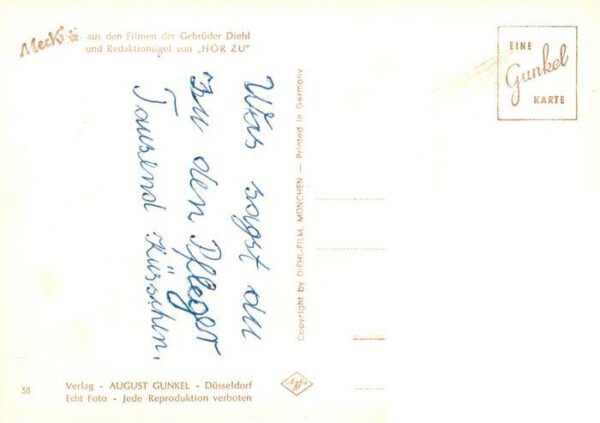 Mecki aus den Filmen der Gebrüder Diehl
und Redaktionsigel von „HÖR ZU"
EINE
Gunkel
KARTE
Was sagst du
zu den Pfleger
Tausend Küsschen.
Copyright by DIEHL-FILM, MÜNCHEN — Printed in Germany
38
Verlag - AUGUST GUNKEL - Düsseldorf
Echt Foto - Jede Reproduktion verboten